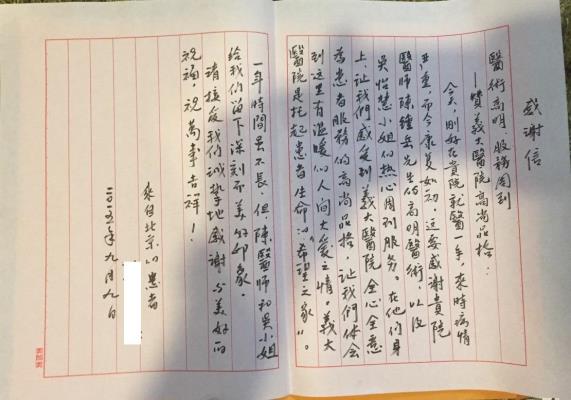 感謝信
醫術高明、服務周到
—贊義大醫院高尚品格：
今天，剛好在貴院就醫一年，來時病情
嚴重，而今康复如初，这要感谢貴院
醫師陳鍾岳先生的高明醫術，以及
吳怡慧小姐的热心周到服务。在他们身
上，让我們感受到義大醫院全心全意
為患者服務的高尚品格，让我們体会
到这里有溫暖的人间大爱之情。義大
醫院是托起患者生命的“希望之家”。
一年時間虽不長，但，陳醫师和吴小姐
给我们留下深刻不美好印象。
请接受我们诚挚地感谢与美好的
祝福，祝萬事吉祥！
來自北京的患者
二〇一五年九月九日